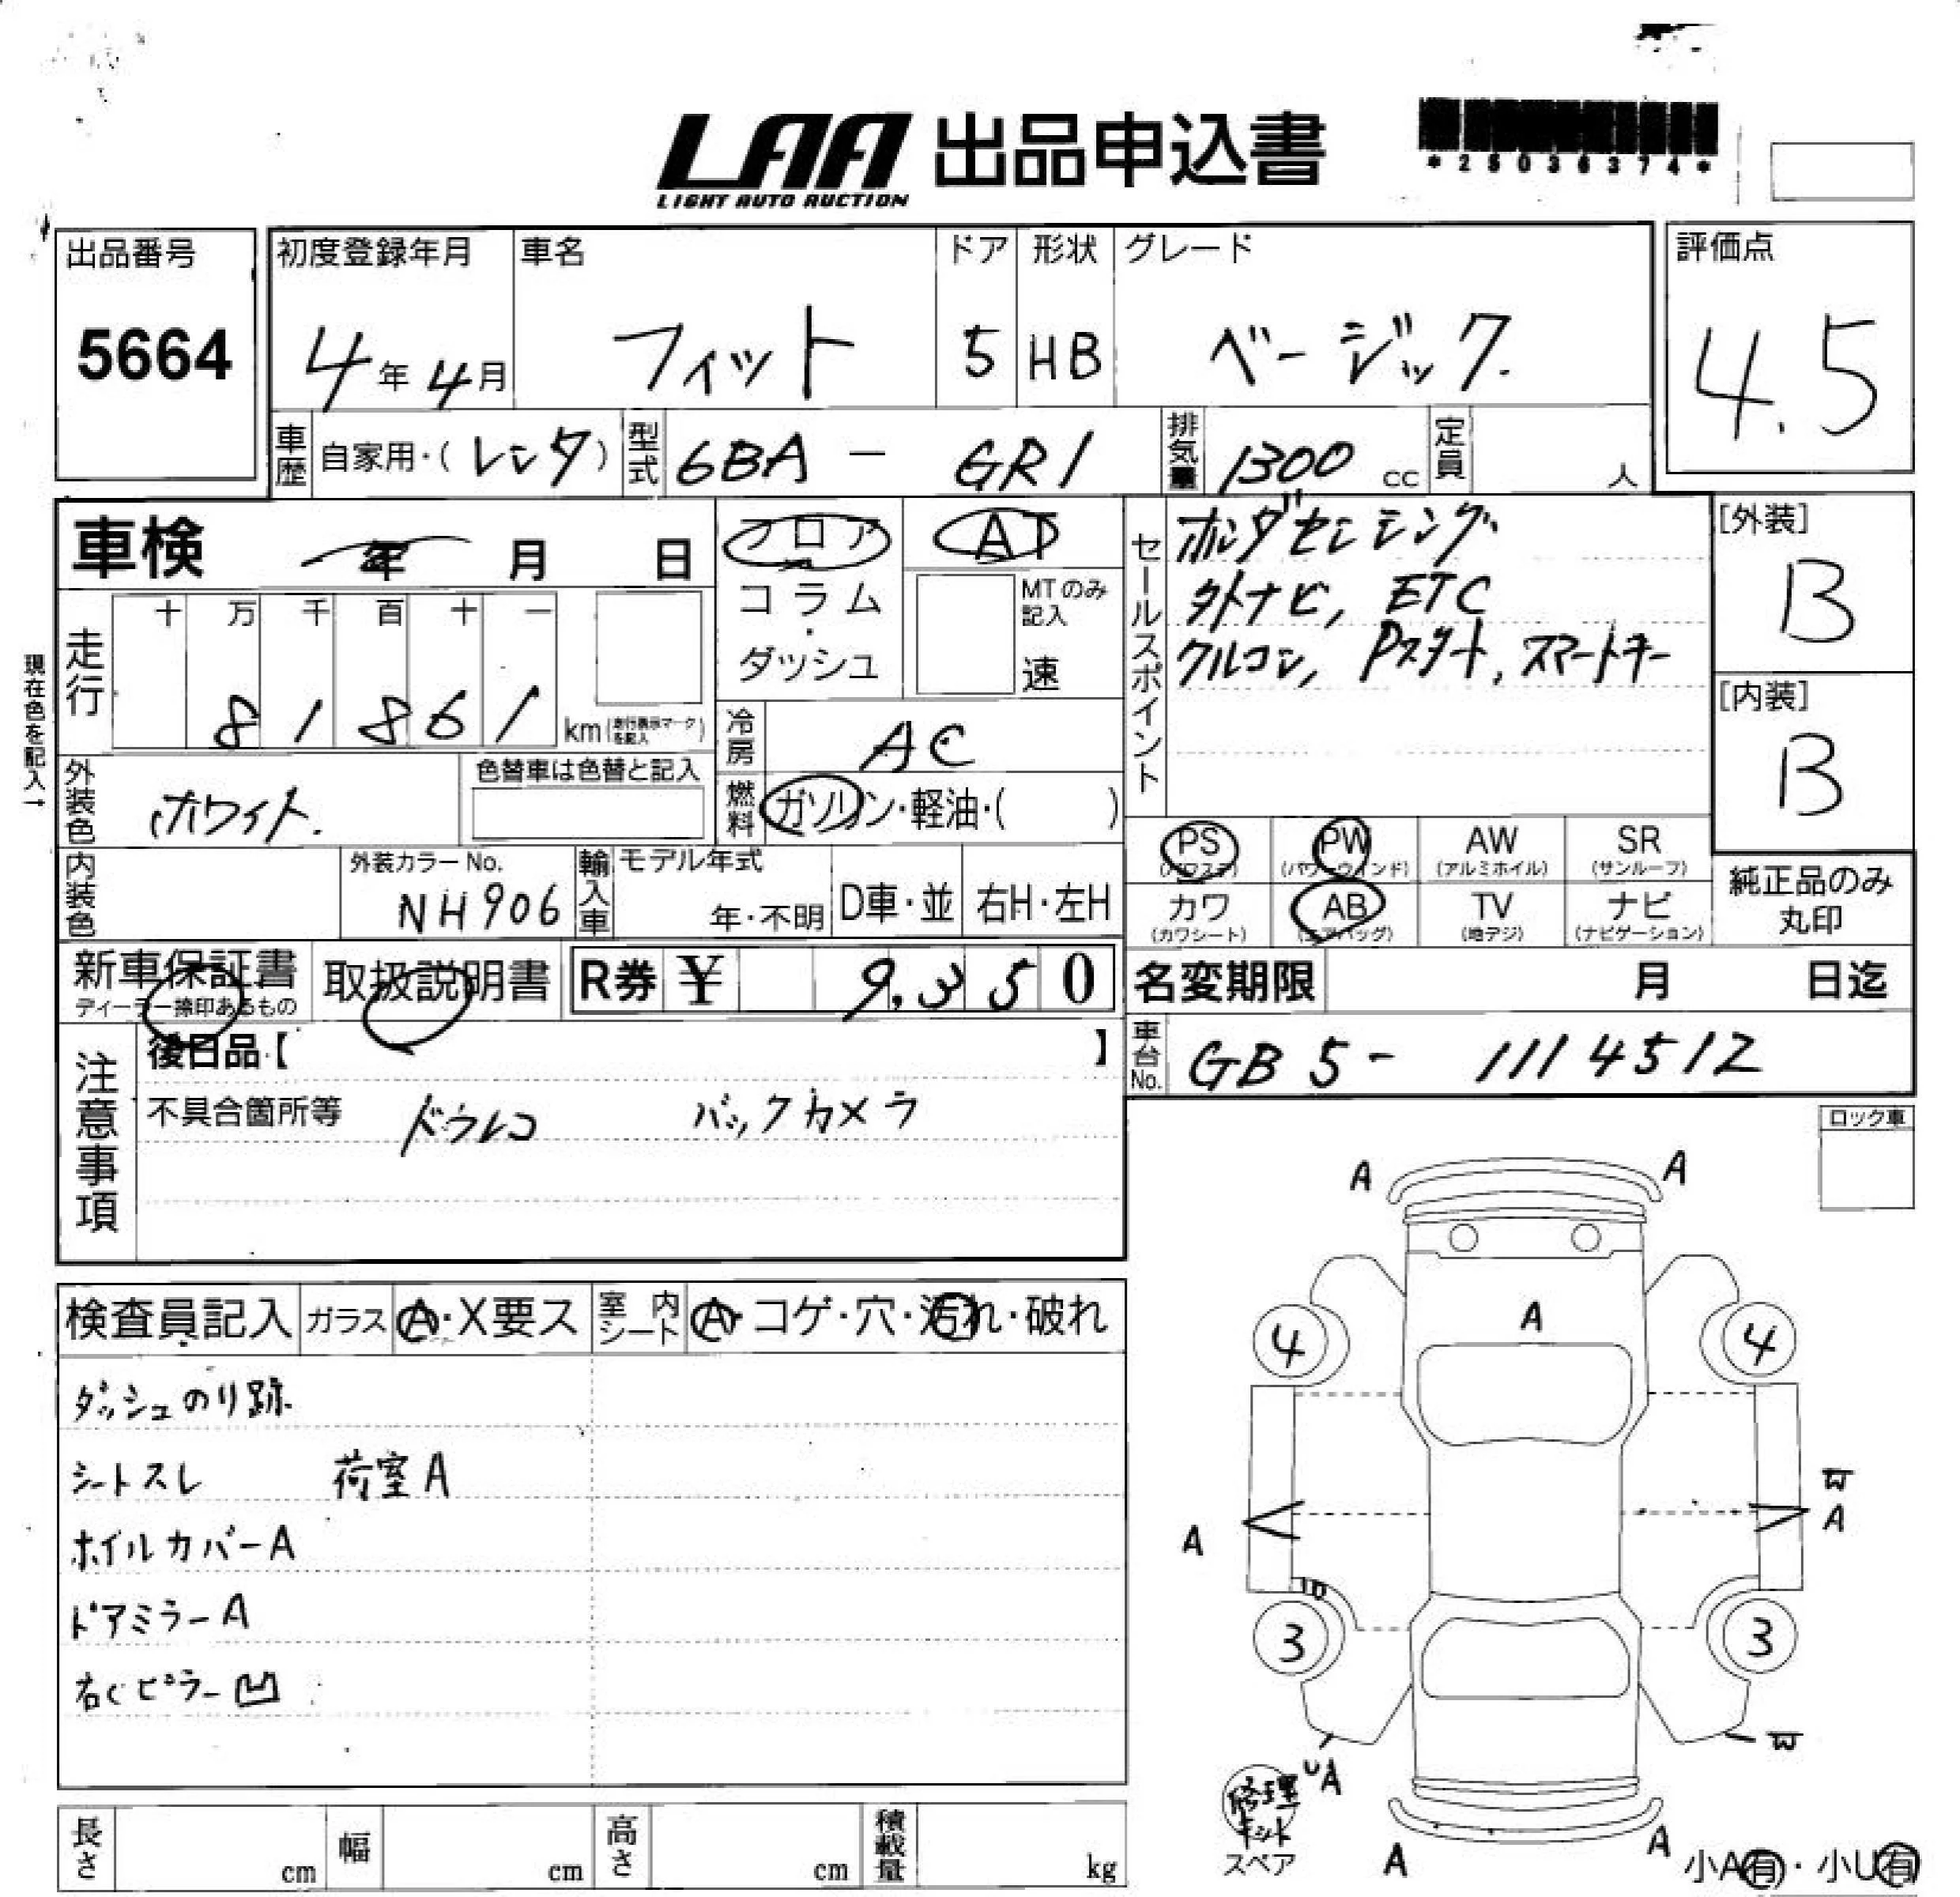 LAA 出品申込書
LIGHT AUTO AUCTION
*25036374*
出品番号 5664
初度登録年月 4年 4月
車名 フィット
ドア 5
形状 HB
グレード ベージック
評価点 4.5
車歴 自家用・(レンタ)
型式 6BA - GR1
排気量 1300 cc
定員 人
車検 年 月 日
フロア
コラム・ダッシュ
AT
MTのみ記入 速
現在色を記入→
走行 十 万 千 百 十 一
8 1 8 6 1 km(走行表示マークを記入)
冷房 AC
燃料 ガソリン・軽油・( )
外装色 ホワイト.
色替車は色替と記入
内装色
外装カラーNo. NH906
輸入車 モデル年式 年・不明 D車・並 右H・左H
セールスポイント
ホンダセンシング
外ナビ, ETC
クルコン, Pスタート, スマートキー
[外装] B
[内装] B
PS (パワステ) PW (パワーウインド) AW (アルミホイル) SR (サンルーフ)
カワ (カワシート) AB (エアバッグ) TV (地デジ) ナビ (ナビゲーション)
純正品のみ丸印
新車保証書
ディーラー捺印あるもの
取扱説明書
R券 ¥ 9,350
名変期限 月 日迄
車台No. GB5- 1114512
注意事項
後日品【 】
不具合箇所等 ドラレコ バックカメラ
ロック車
検査員記入 ガラス A・X要ス 室内シート A・コゲ・穴・汚れ・破れ
ダッシュのり跡.
シートスレ 荷室A
ホイルカバーA
ドアミラーA
右Cピラー凹
A A
A
4 4
W
A A
3 3
W
UA
修理キット
スペア
A A
小A有・小U有
長さ cm 幅 cm 高さ cm 積載量 kg